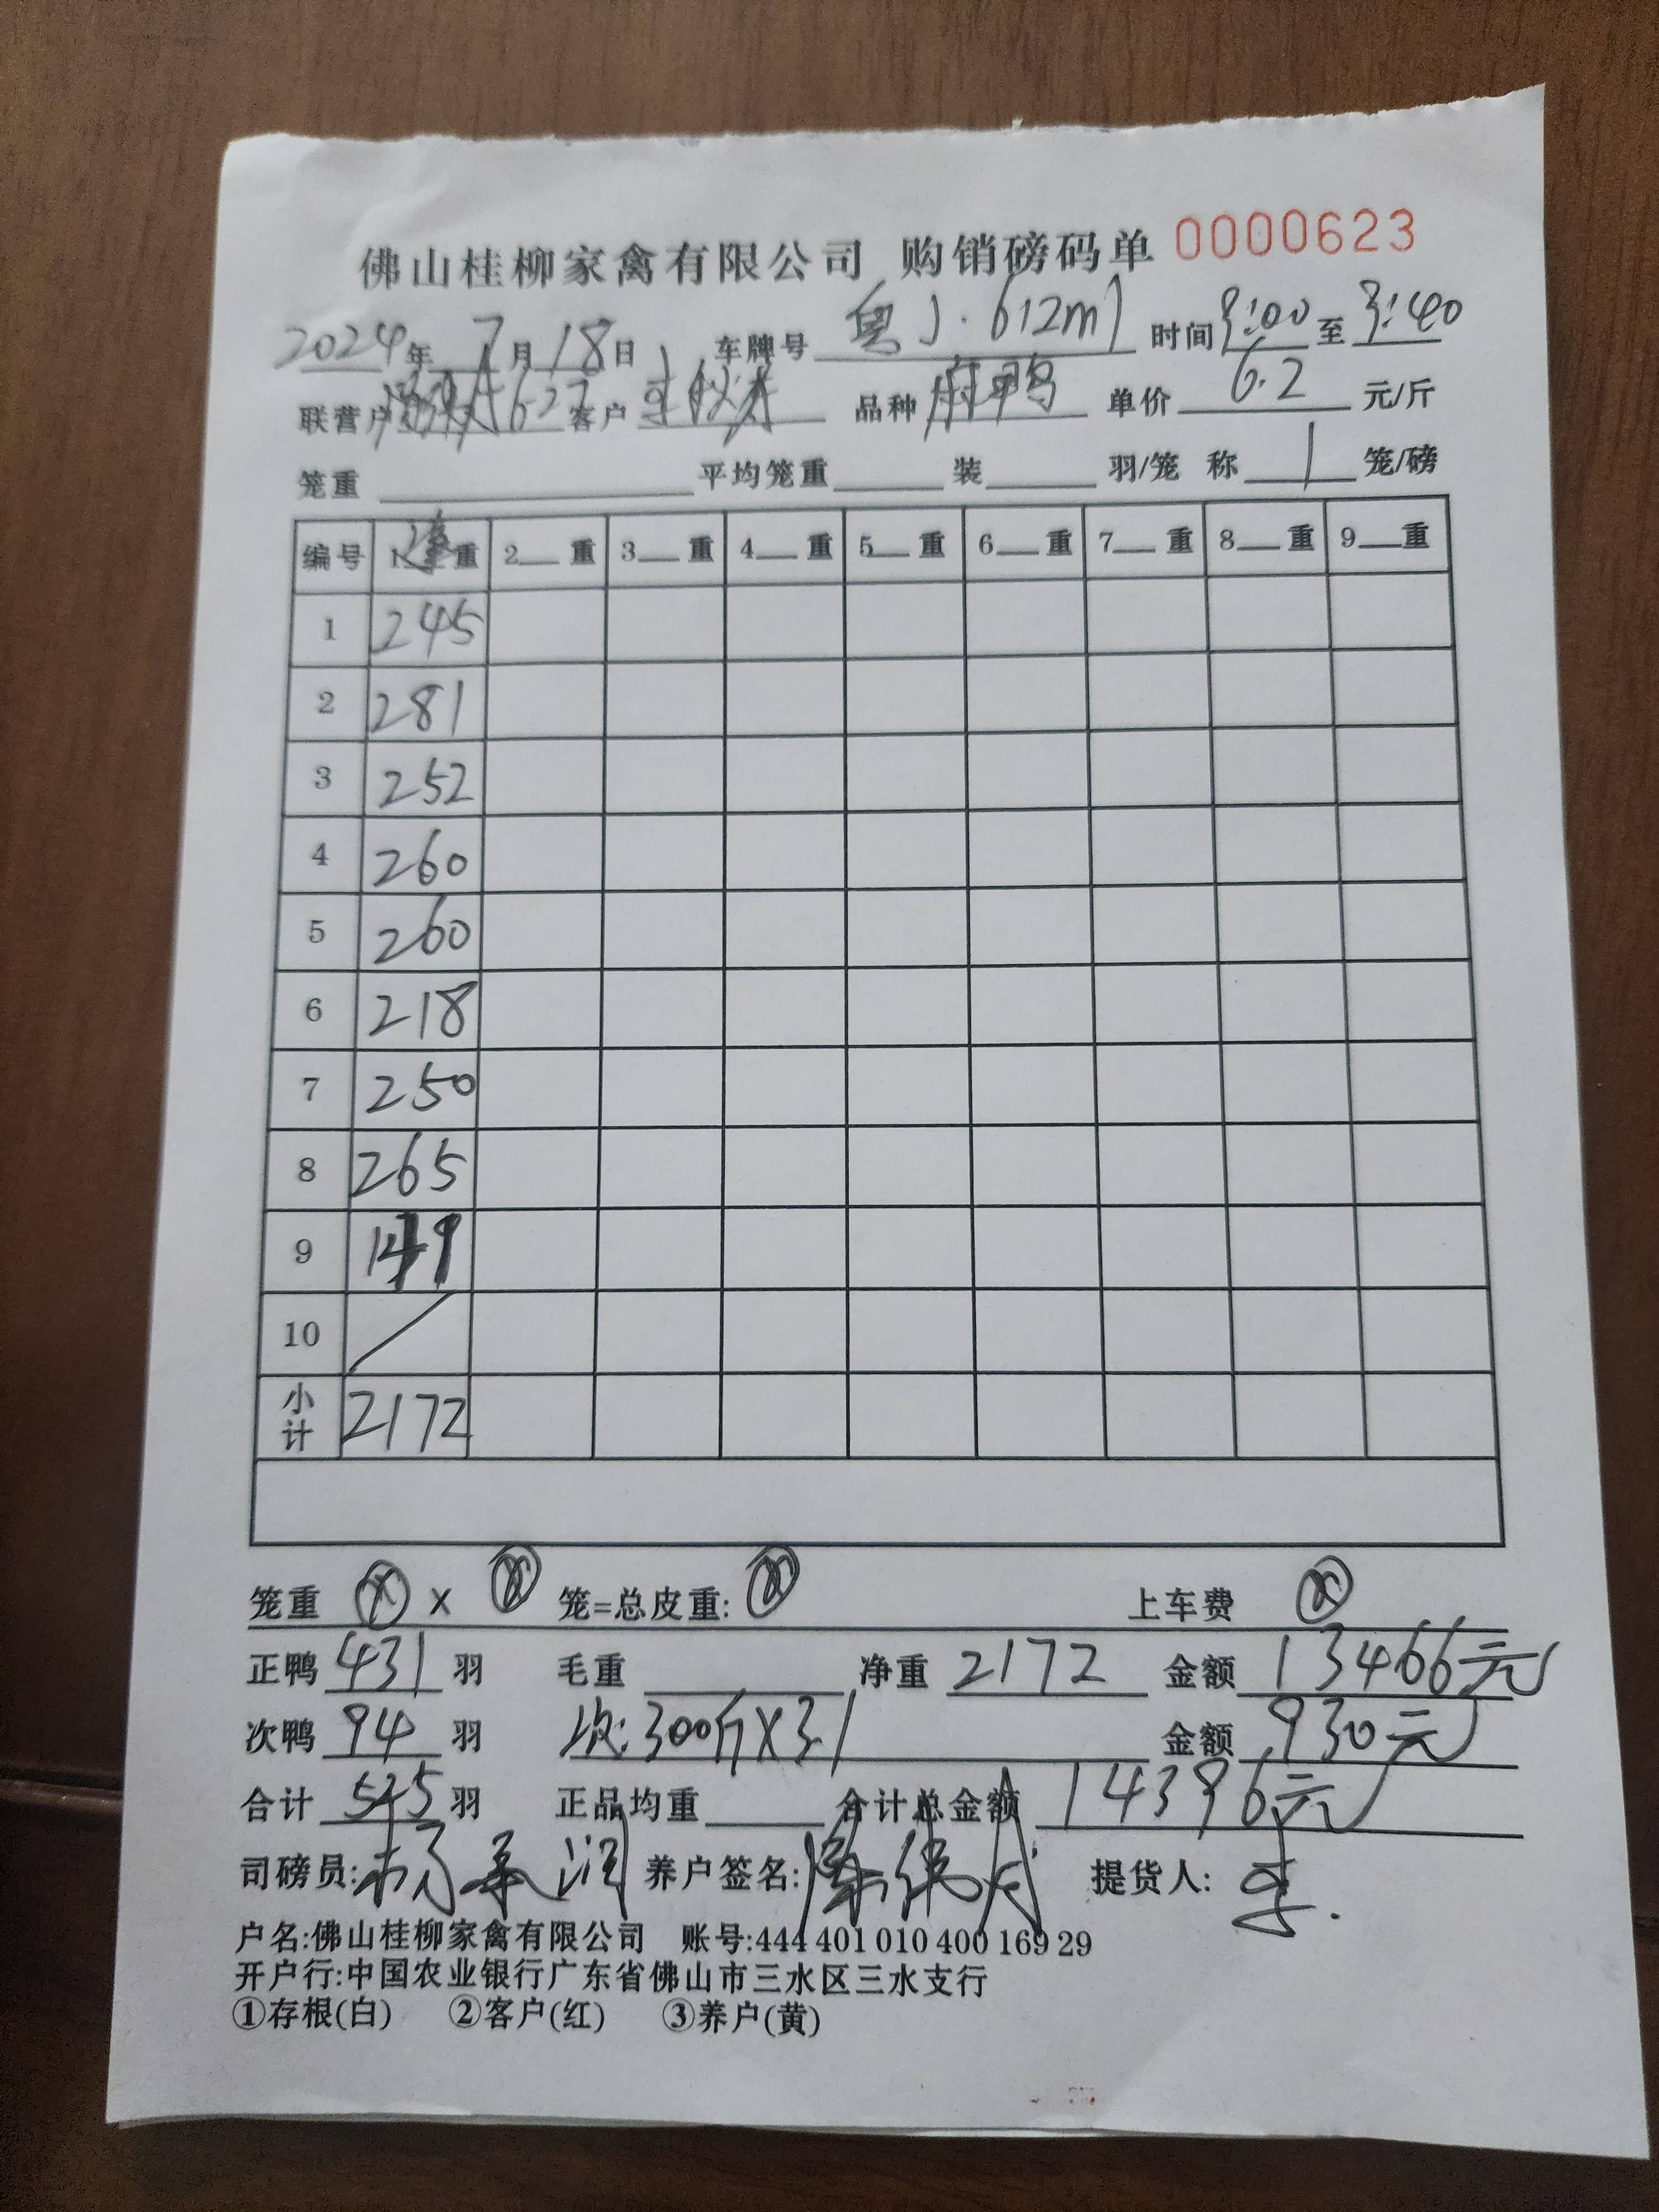 佛山桂柳家禽有限公司 购销磅码单 0000623
2024年 7月18日 车牌号 粤J·612m1 时间 9:00 至 9:40
联营户 627 客户 品种 麻鸭 单价 6.2 元/斤
笼重 平均笼重 装 羽/笼 称 1 笼/磅
编号 1净重 2 重 3 重 4 重 5 重 6 重 7 重 8 重 9 重
1 245
2 281
3 252
4 260
5 260
6 218
7 250
8 265
9 141
10 /
小计 2172
笼重 ⓧ x ⓧ 笼=总皮重: ⓧ 上车费 ⓧ
正鸭 431 羽 毛重 净重 2172 金额 13466元
次鸭 94 羽 次:300斤X3.1 金额 930元
合计 525 羽 正品均重 合计总金额 14396元
司磅员: 养户签名: 提货人: 李
户名:佛山桂柳家禽有限公司 账号:444 401 010 400 169 29
开户行:中国农业银行广东省佛山市三水区三水支行
①存根(白) ②客户(红) ③养户(黄)